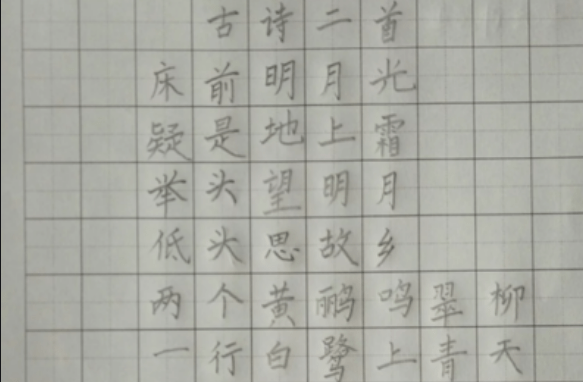 古诗二首
床前明月光
疑是地上霜
举头望明月
低头思故乡
两个黄鹂鸣翠柳
一行白鹭上青天